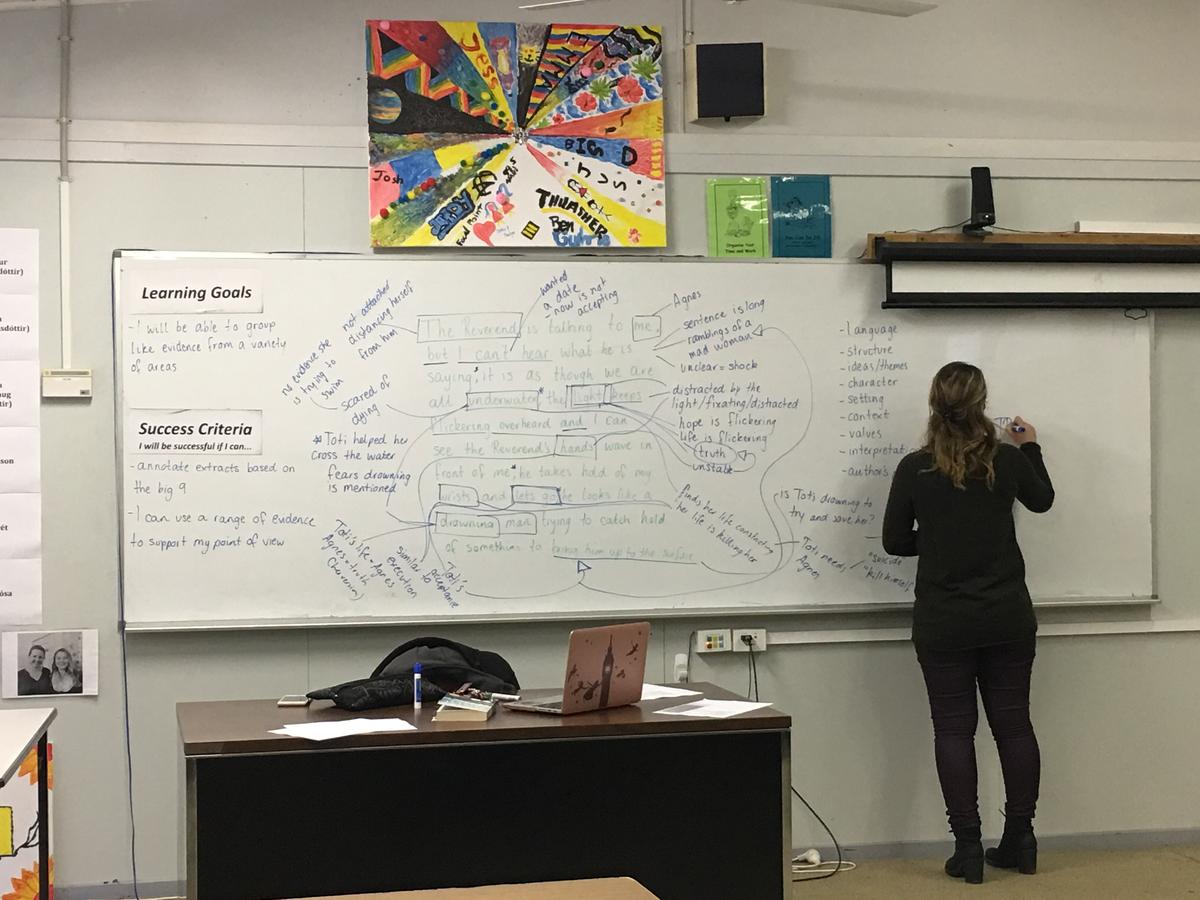 Jess
EMMA
BIG D
Josh
THRASHER
Ben
Organise Your
Time and Work
Learning Goals
- I will be able to group
like evidence from a variety
of areas
Success Criteria
I will be successful if I can...
- annotate extracts based on
the big 9
- I can use a range of evidence
to support my point of view
not attached
distancing herself
from him
wanted
a date
- now is not
accepting
Agnes
sentence is long
ramblings of a
mad woman
unclear = shock
no evidence she
is trying to
swim
scared of
dying
* Toti helped her
cross the water
fears drowning
is mentioned
The Reverend is talking to me,
but I can't hear what he is
saying, it is as though we are
all underwater, the light keeps
flickering overheard and I can
see the Reverend's hands wave in
front of me, he takes hold of my
wrists and lets go he looks like a
drowning man trying to catch hold
of something to bring him up to the surface
distracted by the
light/fixating/distracted
hope is flickering
life is flickering
truth
unstable
finds her life constricting
her life is killing her
is Toti drowning to
try and save her?
Toti needs
Agnes
"suicide
"kill himself
Toti's life = Agnes
Agnes = truth
similar to
execution
Toti's
acceptance
- language
- structure
- ideas/themes
- character
- setting
- context
- values
- interpretati
- author's